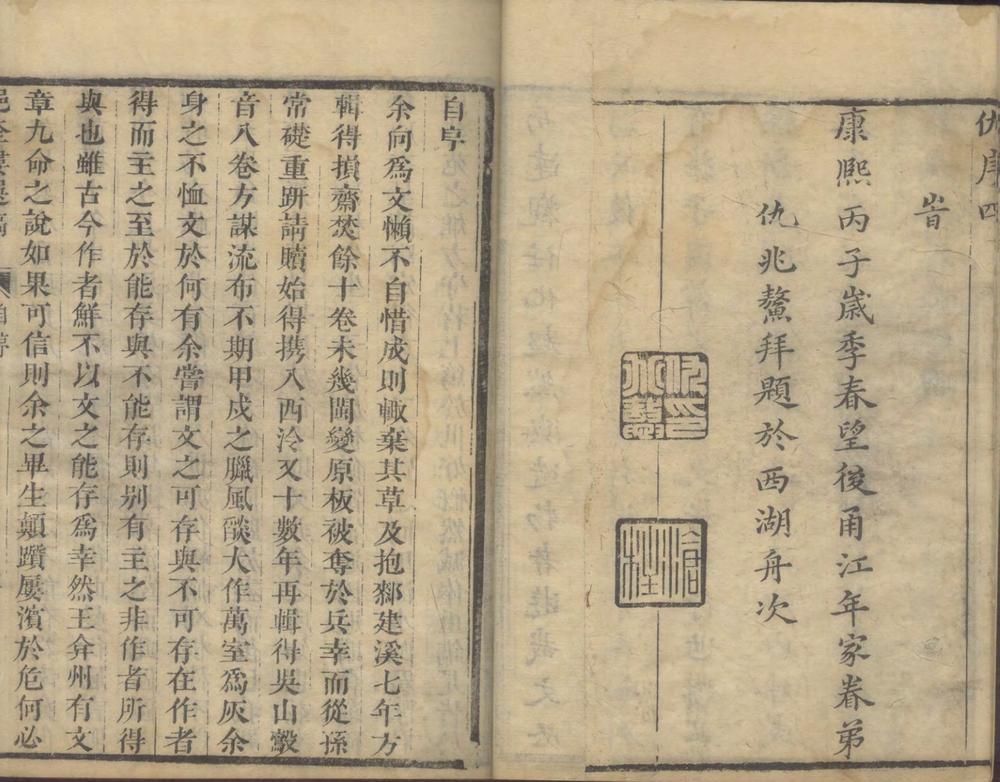 仇序四
旹
康熙丙子嵗季春望後甬江年家眷弟
仇兆鰲拜題於西湖舟次
滄柱
自序
余向爲文懶不自惜成則輙棄其草及抱鄰建溪七年方
輯得損齋焚餘十卷未幾閩變原板被奪於兵幸而從孫
常礎重趼請贖始得携入西泠又十數年再輯得吳山鷇
音八卷方謀流布不期甲戍之臘風燄大作萬室爲灰余
身之不恤文於何有余嘗謂文之可存與不可存在作者
得而主之至於能存與不能存則别有主之非作者所得
與也雖古今作者鮮不以文之能存爲幸然王弇州有文
章九命之說如果可信則余之畢生顛躓屢濱於危何必
自序